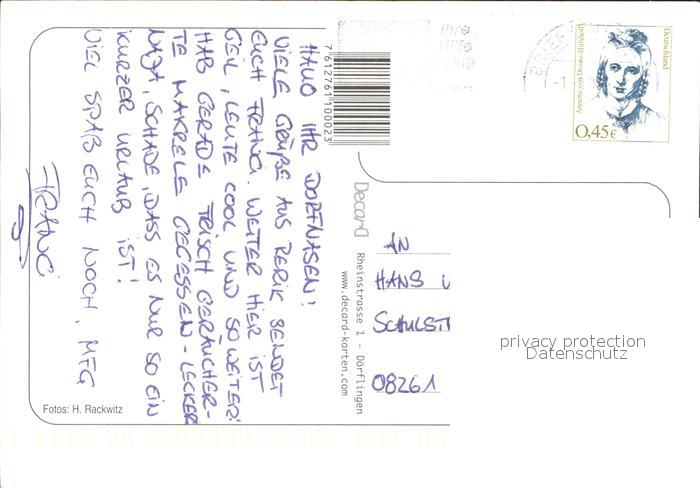 HALLO IHR DORFNASEN!
VIELE GRÜßE AUS RERIK SENDET
EUCH FRANCI. WETTER HIER IST
GEIL, LEUTE COOL UND SO WEITER!
HAB GERADE FRISCH GERÄUCHER-
TE MAKRELE GEGESSEN - LECKER
NAJA, SCHADE, DASS ES NUR SO EIN
KURZER URLAUB IST!
VIEL SPAß EUCH NOCH, MFG
FRANCI
7612761100023
Decard
Rheinstrasse 1 - Dörflingen
www.decard-karten.com
Fotos: H. Rackwitz
Ihre
BRIEF
Deutschland
Annette von Droste-Hülshoff
0,45€
AN
HANS
SCHULST
08261
privacy protection
Datenschutz